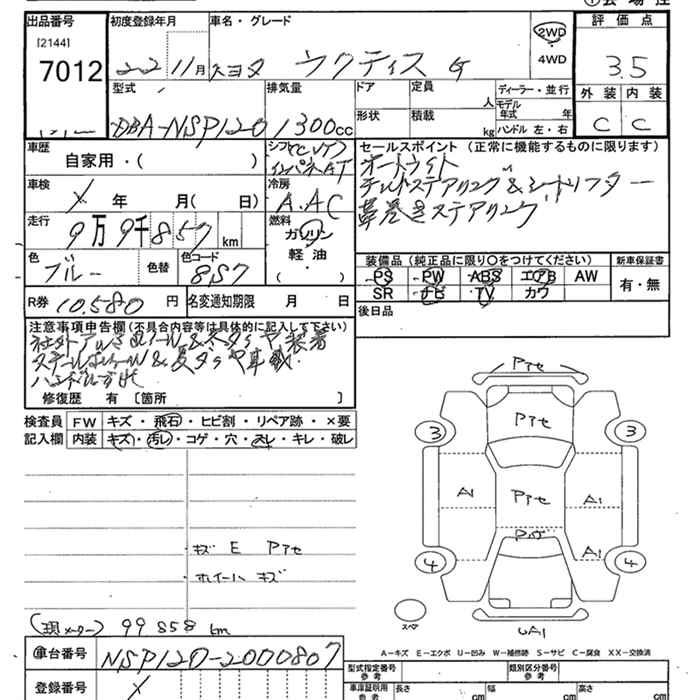 出品番号
[2144]
7012
初度登録年月
22 11月
車名・グレード
トヨタ ラクティス G
2WD
4WD
評価点
3.5
外装 内装
C C
型式
DBA-NSP120
排気量
1300cc
ドア
形状
定員
人
積載
kg
ディーラー・並行
モデル年式 年
ハンドル 左・右
車歴
自家用・( )
シフト (CVT)
インパネAT
車検
X 年 月( 日)
冷房
A.AC
走行
9万9千857 km
燃料
ガソリン
軽・油
( )
色
ブルー
色替
色コード
8S7
R券 10.580 円
名変通知期限 月 日
セールスポイント(正常に機能するものに限ります)
オートライト
チルトステアリング&シートリフター
革巻きステアリング
装備品(純正品に限り○をつけてください)
PS PW ABS エアB AW
SR ナビ TV カワ
新車保証書
有・無
後日品
注意事項申告欄(不具合内容等は具体的に記入して下さい)
社外アルミホイール&冬タイヤ装着
スチールホイール&夏タイヤ車載
修復歴 有 [箇所 ]
検査員 FW キズ・飛石・ヒビ割・リペア跡・×要
記入欄 内装 キズ・汚レ・コゲ・穴・スレ・キレ・破レ
キズ E Pアセ
ホイール キズ
(現メーター) 99858 km
車台番号 NSP120-2000807
登録番号 X
Pアセ
Pアセ
3 3
A1 Pアセ A1
A1
4 4
スペア
UA1
A-キズ E-エクボ U-凹み W-補修跡 S-サビ C-腐食 XX-交換済
型式指定番号 参考
類別区分番号 参考
車庫証明用 参考
長さ cm 幅 cm 高さ cm